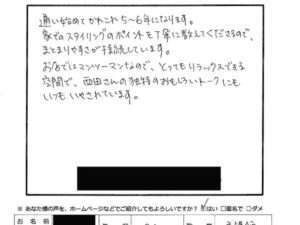 通い始めてかれこれ5～6年になります。
家でのスタイリングのポイントも丁寧に教えてくださるので、
まとまりやすさが持続しています。
お店ではマンツーマンなので、とってもリラックスできる
空間で、西田さんの独特のおもしろいトークにも
いつもいやされています。
※ あなた様の声を、ホームページなどでご紹介してもよろしいですか？ はい □匿名で □ダメ
お 名 前